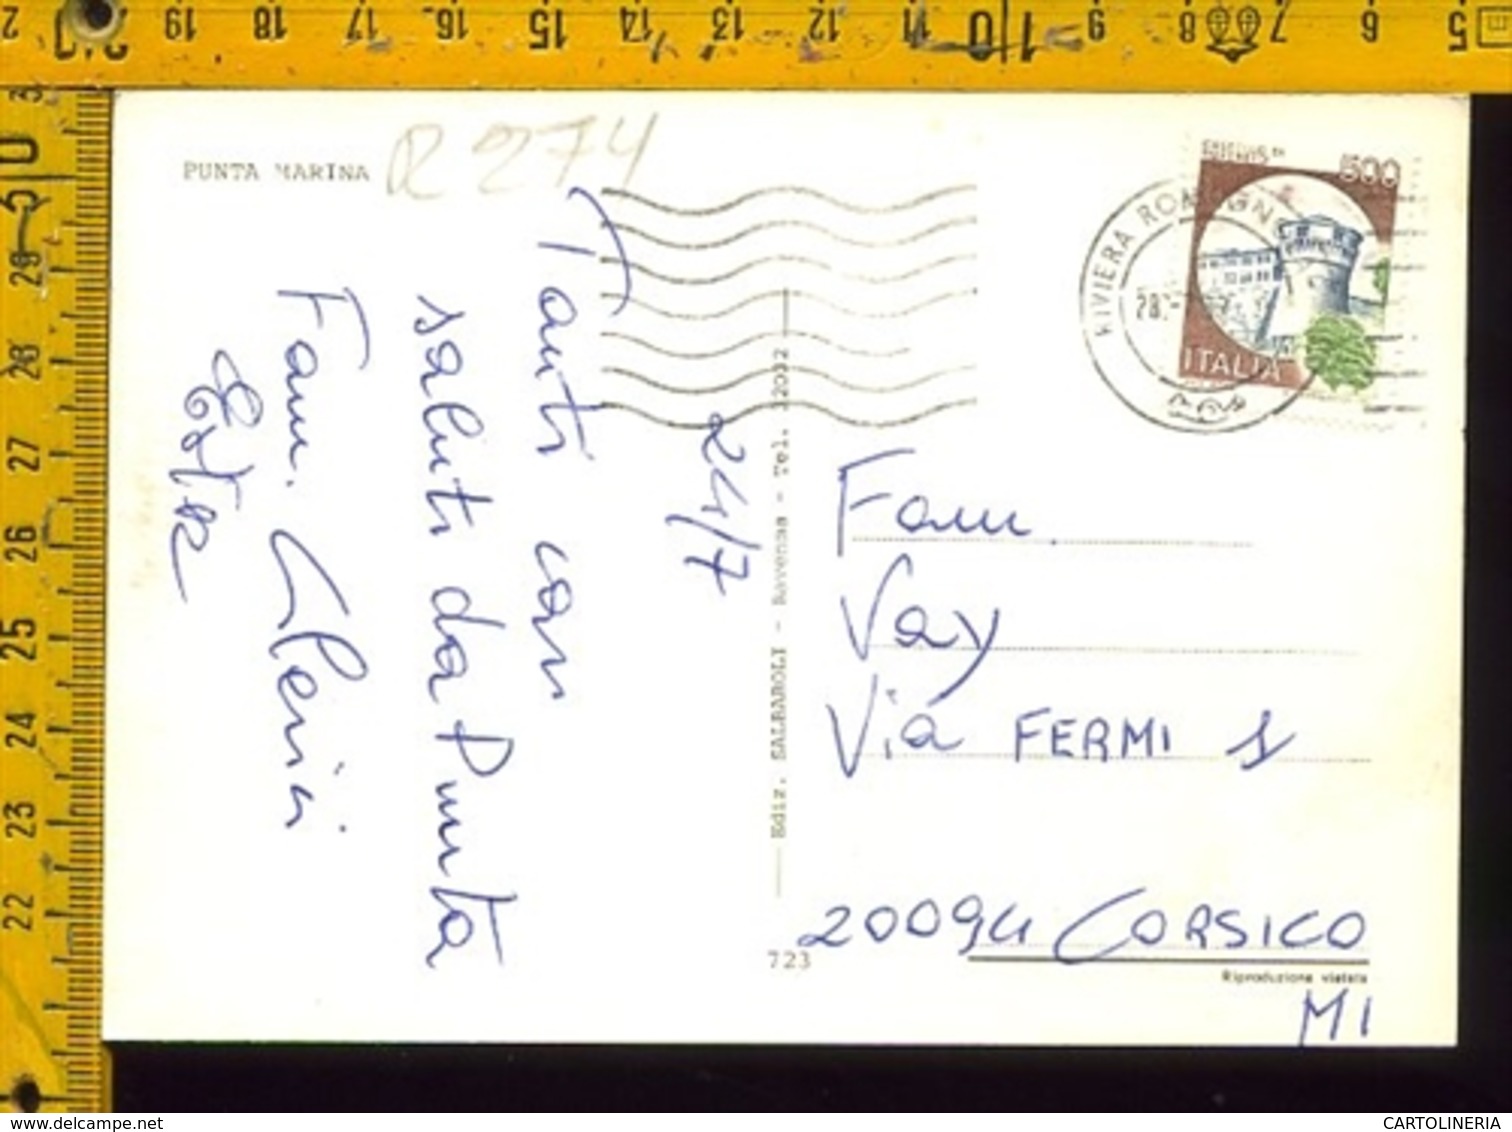 PUNTA MARINA
R 274
24/7
Tanti cari
saluti da Punta
Fam.
500
ITALIA
RIVIERA ROMAGNO
Ediz. SALBAROLI - Ravenna - Tel. 32032
723
Fam
Vay
Via FERMI 1
20094 CORSICO
MI
Riproduzione vietata
delcampe.net
CARTOLINERIA